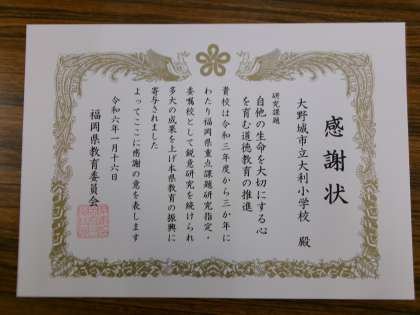 感謝状
大野城市立大利小学校 殿
研究課題
自他の生命を大切にする心
を育む道徳教育の推進
貴校は令和三年度から三か年に
わたり福岡県重点課題研究指定・
委嘱校として鋭意研究を続けられ
多大の成果を上げ本県教育の振興に
寄与されました
よってここに感謝の意を表します
令和六年一月十六日
福岡県教育委員会